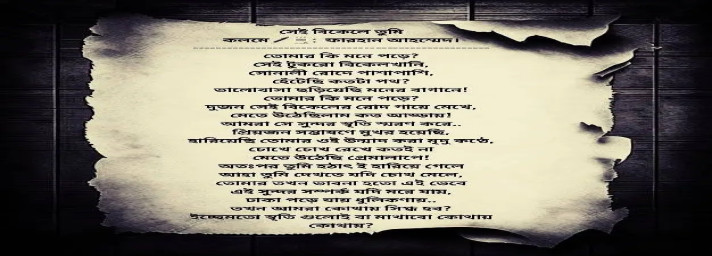 সেই বিকেলে তুমি
কলমে 🖊 : ফারহান আহম্মেদ।
তোমার কি মনে পড়ে?
সেই টুকরো বিকেলখানি,
সোনালী রোদে পাশাপাশি,
হেঁটেছি কতটা পথ?
ভালোবাসা ছড়িয়েছি মনের বাগানে!
তোমার কি মনে পড়ে?
দুজন সেই বিকেলের রোদ গায়ে মেখে,
মেতে উঠেছিলাম কত আড্ডায়!
আমরা সে সুন্দর স্মৃতি স্মরণ করে..
প্রিয়জন সম্ভাষণে মুখর হয়েছি,
হারিয়েছি তোমার ওই উন্মাদ করা মৃদু কণ্ঠে,
চোখে চোখ রেখে কতই না
মেতে উঠেছি প্রেমালাপে!
অতঃপর তুমি হঠাৎ ই হারিয়ে গেলে
আহা তুমি দেখতে যদি চোখ মেলে,
তোমার তখন ভাবনা হতো এই ভেবে
এই সুন্দর সম্পর্ক যদি মরে যায়,
ঢাকা পড়ে যায় ধূলিকণায়..
তখন আমরা কোথায় সিদ্ধ হব?
ইচ্ছেমতো স্মৃতি গুলোই বা মাখাবো কোথায়
কোথায়?